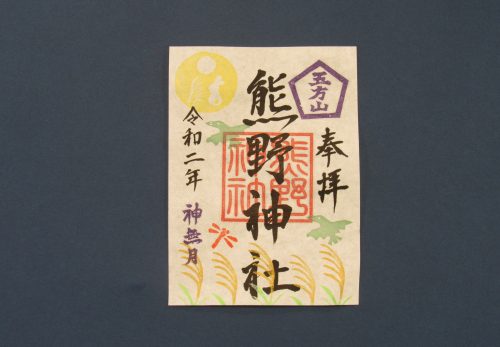 五方山
奉拝
熊野神社
熊野
神社
令和二年
神無月